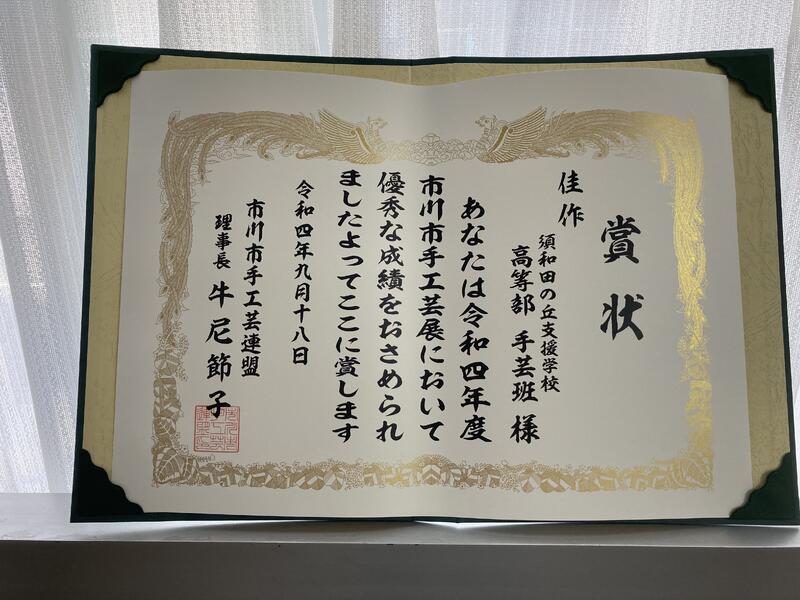 賞状
佳作
須和田の丘支援学校
高等部 手芸班 様
あなたは令和四年度
市川市手工芸展において
優秀な成績をおさめられ
ましたよってここに賞します
令和四年九月十八日
市川市手工芸連盟
理事長 牛尼節子